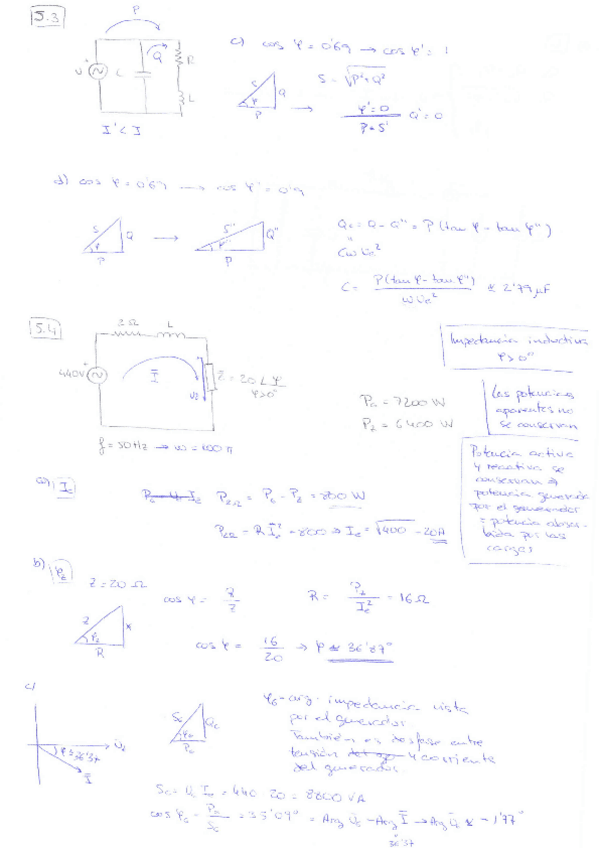 5.3
P
Q
R
L
I' < I
c) cos φ = 0'69 → cos φ' = 1
S Q φ P
S = √P²+Q²
φ' = 0
P = S'
Q' = 0
d) cos φ = 0'69 → cos φ' = 0'9
S Q φ P
S'' Q'' φ'' P
Qc = Q - Q'' = P (tan φ - tan φ'')
Cω Uc²
C = P(tan φ - tan φ'') / ωUc² ≃ 2'79 μF
5.4
2Ω L
440V
I
Z = 20∠φ
φ>0°
f = 50Hz → ω = 100π
PG = 7200 W
PZ = 6400 W
Impedancia inductiva
φ > 0°
Las potencias
aparentes no
se conservan
Potencia activa
y reactiva se
conservan ⇒
potencia generada
por el generador
= potencia absor-
bida por las
cargas
a) Ie
P2Ω = PG - PZ = 800 W
P2Ω = R Ie² = 800 ⇒ Ie = √400 = 20A
b) φZ
Z = 20 Ω
Z X φZ R
cos φ = R/Z
R = PZ / Ie² = 16 Ω
cos φ = 16/20 → φ ≃ 36'87°
c)
I
SG QG φG PG
φG = arg. impedancia vista
por el generador
También es desfase entre
tensión y corriente
del generador
SG = U Ie = 440 · 20 = 8800 VA
cos φG = PG/SG = 35'09° = Arg UG - Arg I → Arg UG ≃ -1'77°